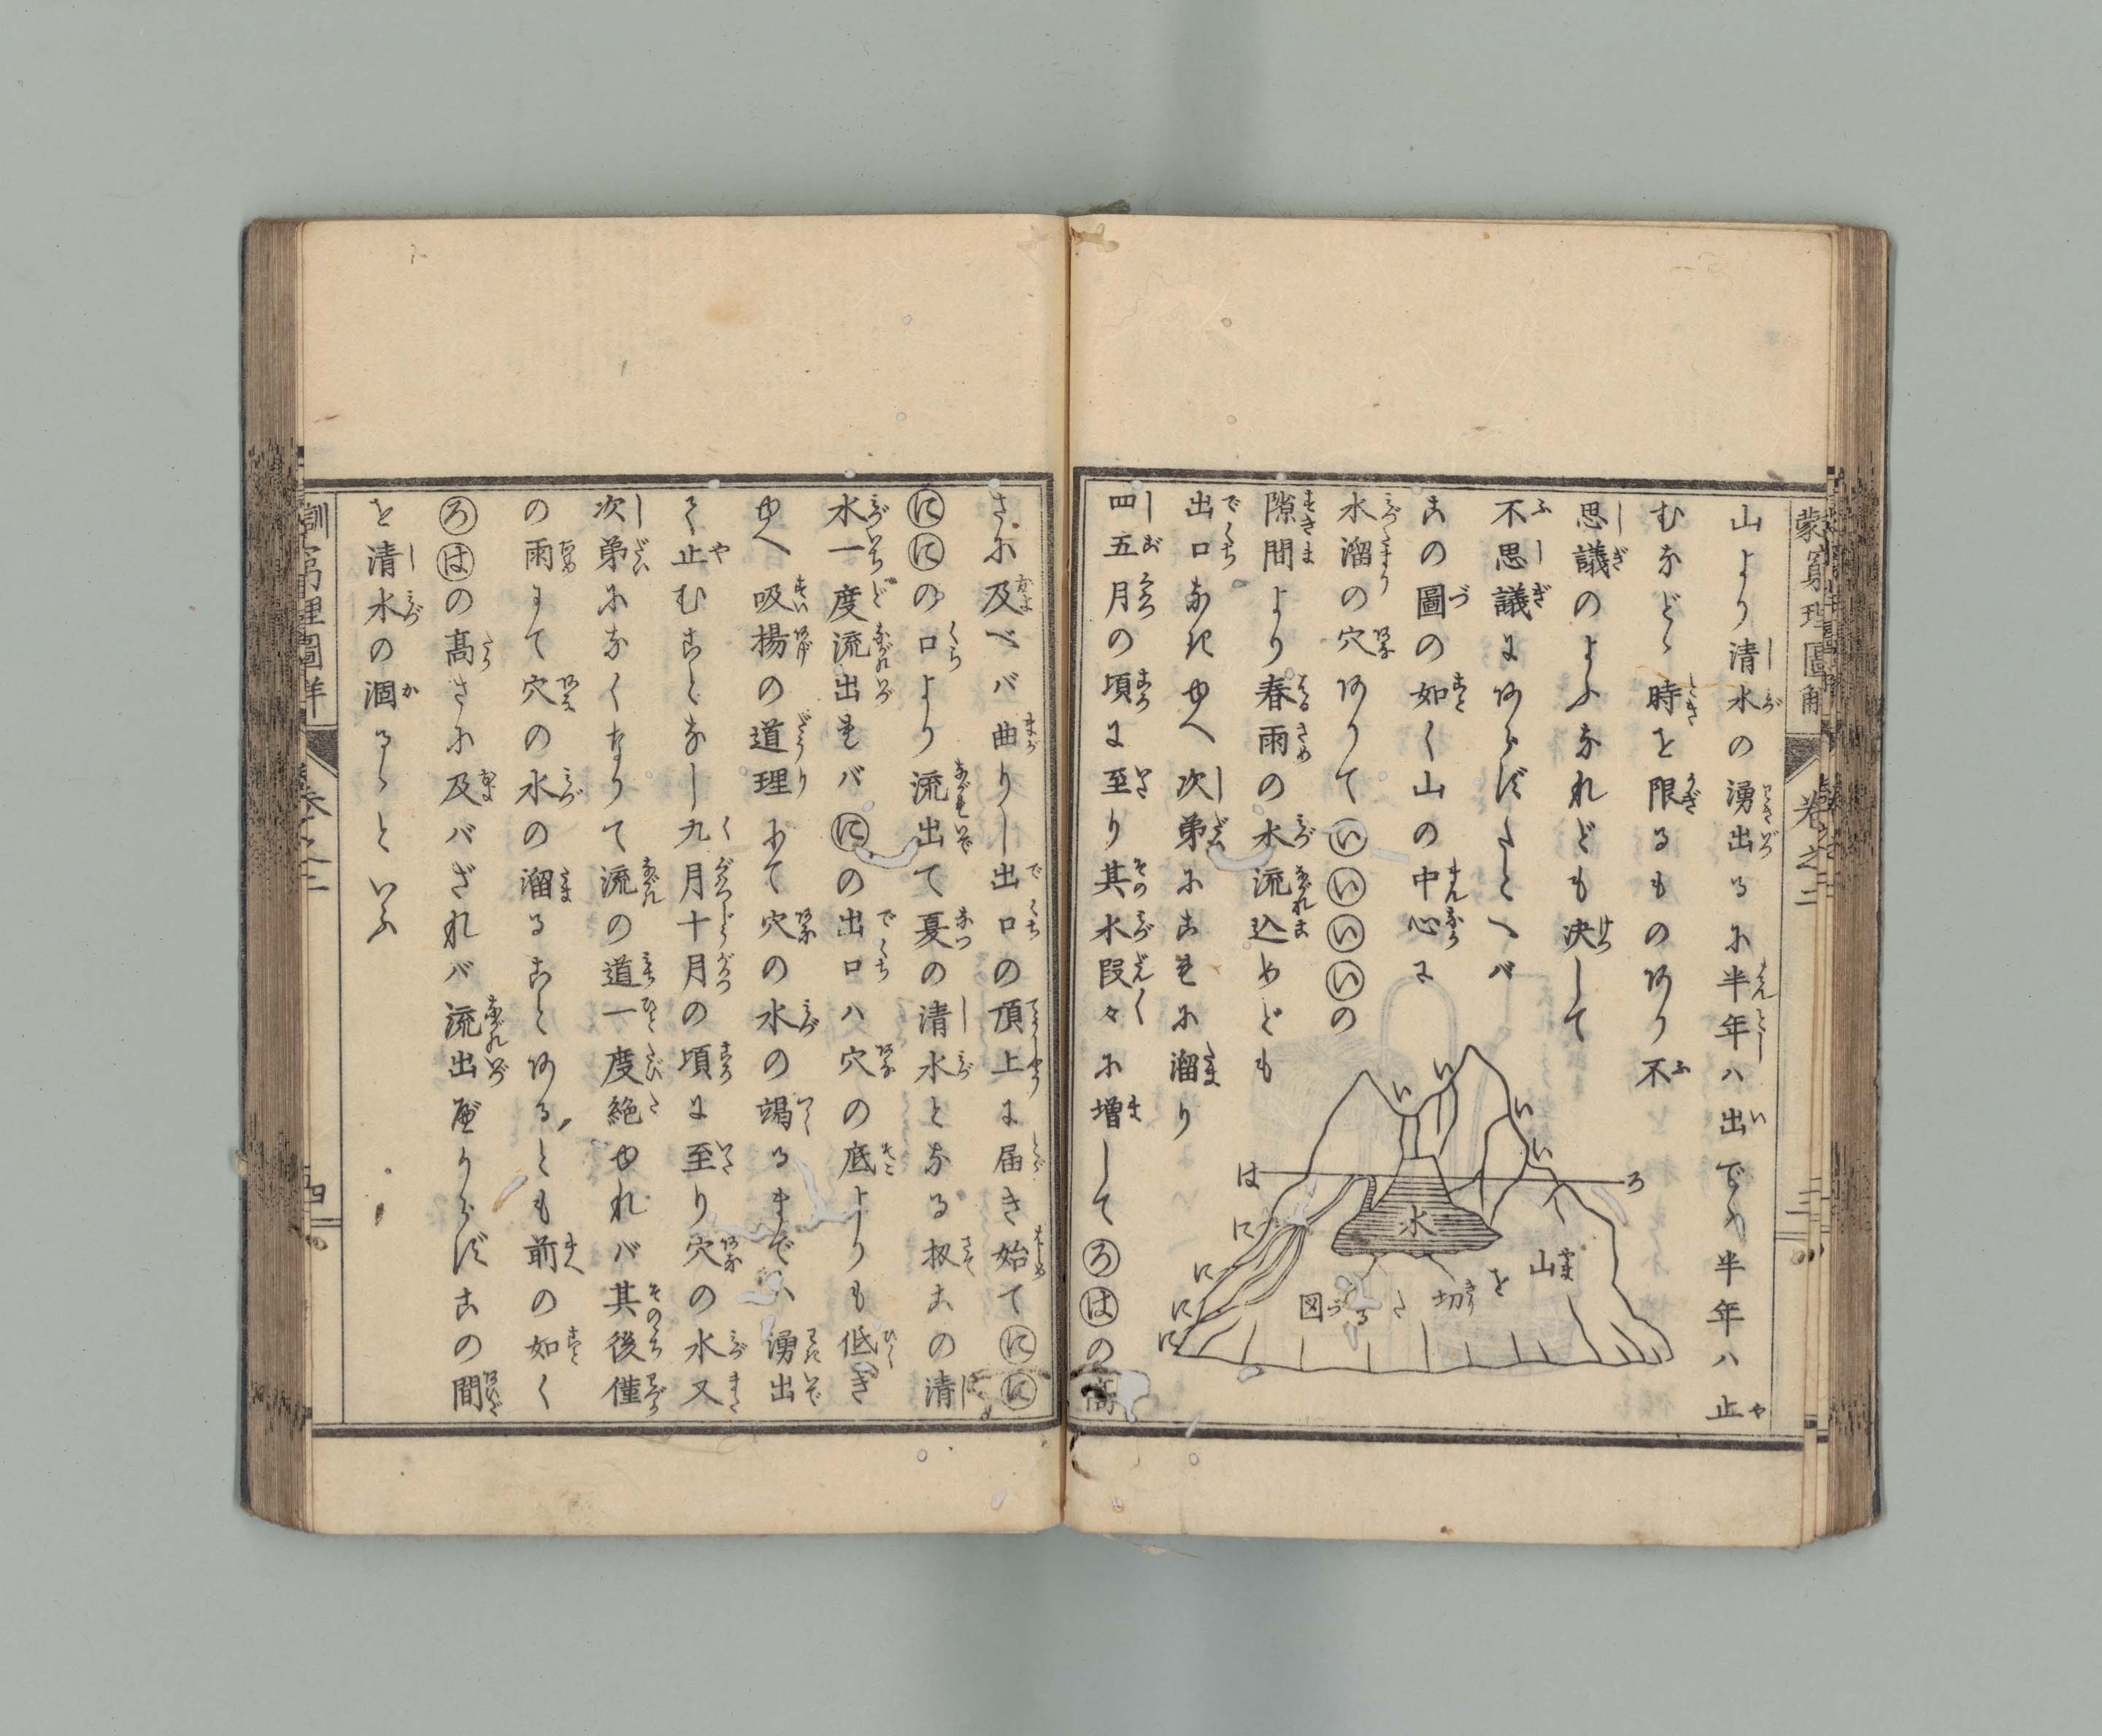 山より清水の湧出るに半年ハ出で又半年ハ止
むなどゝ時を限るものあり不
思議のよふなれども決して
不思議にあらずたとへバ
この圖の如く山の中心に
水溜の穴ありていいいいの
隙間より春雨の水流込めども
出口なきゆへ次第にこれに溜り
四五月の頃に至り其水段々に増してろはの高
い
い
い
い
ろ
は
に
に
に
に
水
山を切たる図
さに及べバ曲りし出口の頂上に届き始てにに
ににの口より流出て夏の清水となる扨この清
水一度流出れバにの出口ハ穴の底よりも低き
ゆへ吸揚の道理にて穴の水の竭るまでハ湧出
て止むことなし九月十月の頃に至り穴の水又
次第になくなりて流の道一度絶ゆれバ其後僅
の雨にて穴の水の溜ることあるとも前の如く
ろはの高さに及バざれバ流出べからずこの間
を清水の涸るゝといふ
訓蒙窮理圖解
卷之二
三
四